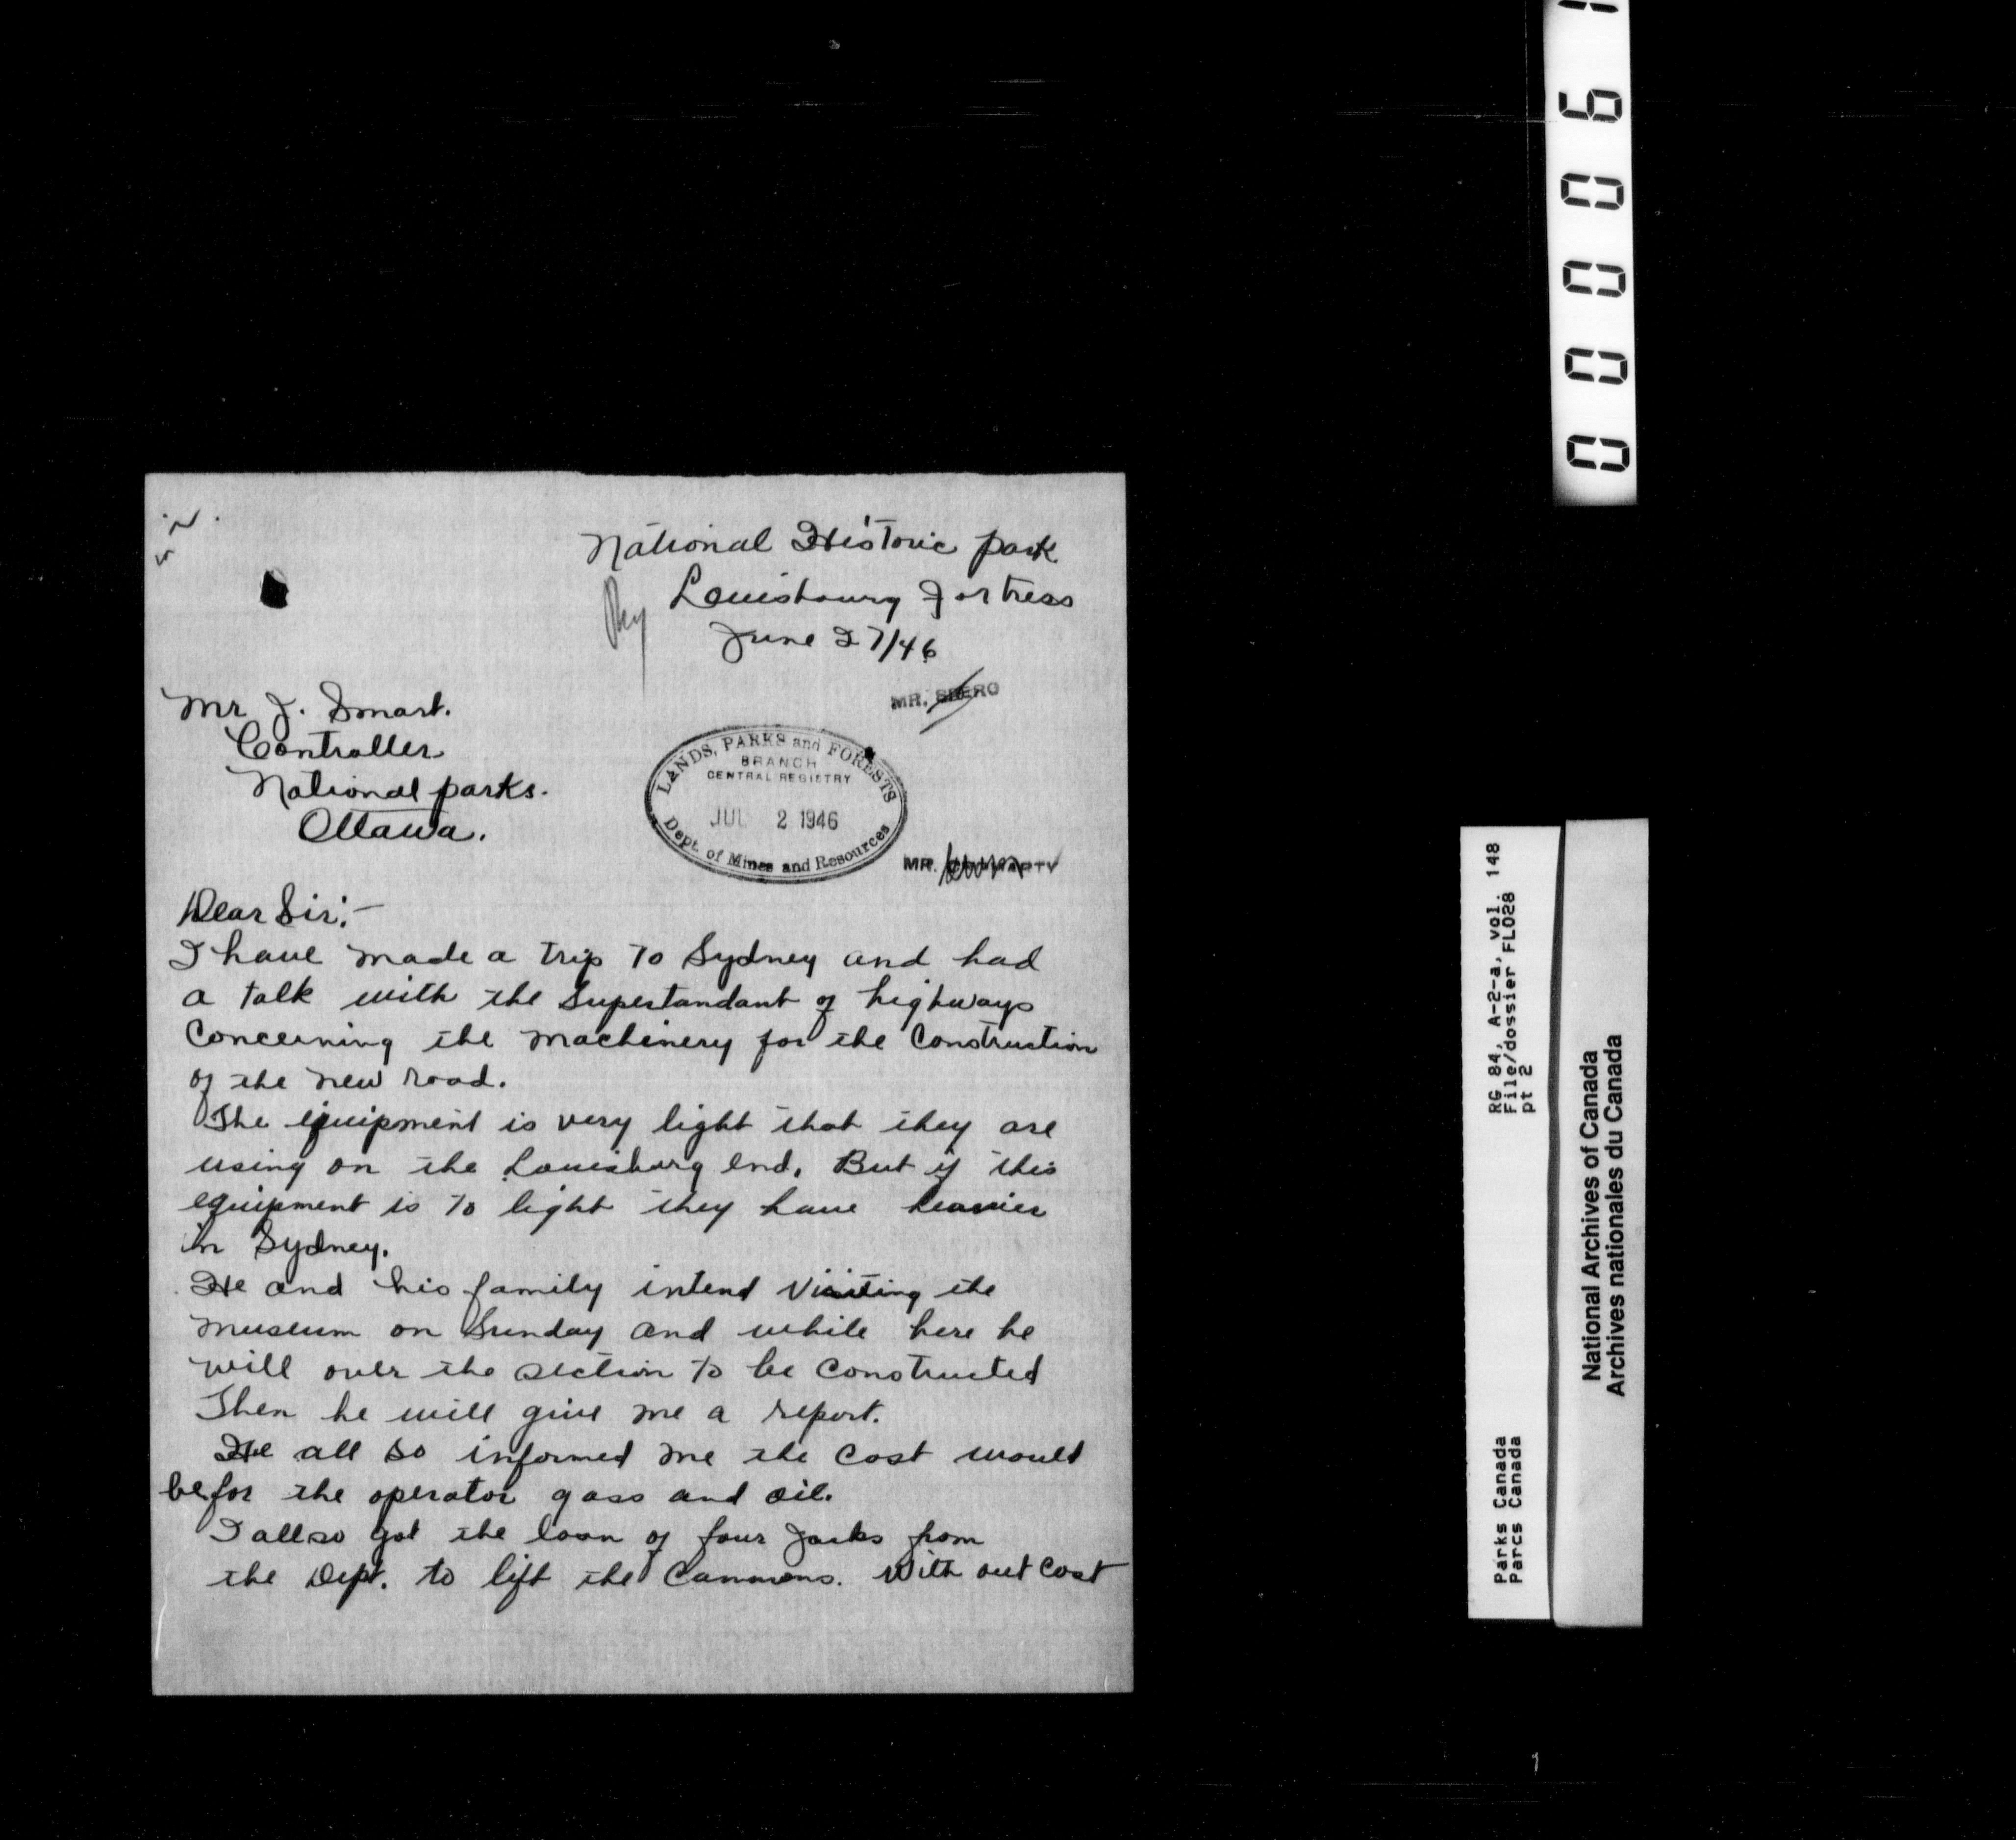 National Historic park
Louisbourg Fortress
June 27/46
MR. SPERO
Mr J. Smart.
Controller
National parks.
Ottawa.
LANDS, PARKS and FORESTS
BRANCH
CENTRAL REGISTRY
JUL 2 1946
Dept. of Mines and Resources
MR.
Dear Sir:-
I have made a trip to Sydney and had
a talk with the Supertandant of highways
Concerning the machinery for the Construction
of the new road.
The equipment is very light that they are
using on the Louisburg end. But if this
equipment is to light they have heavier
in Sydney.
He and his family intend visiting the
museum on Sunday and while here he
will over the section to be constructed
Then he will give me a report.
He all so informed me the cost would
be for the operator gass and oil.
I allso got the loan of four Jacks from
the Dept. to lift the Cannons. With out cost
0 0 0 0 6 1
RG 84, A-2-a, vol. 148
File/dossier FLO28
pt 2
Parks Canada
Parcs Canada
National Archives of Canada
Archives nationales du Canada